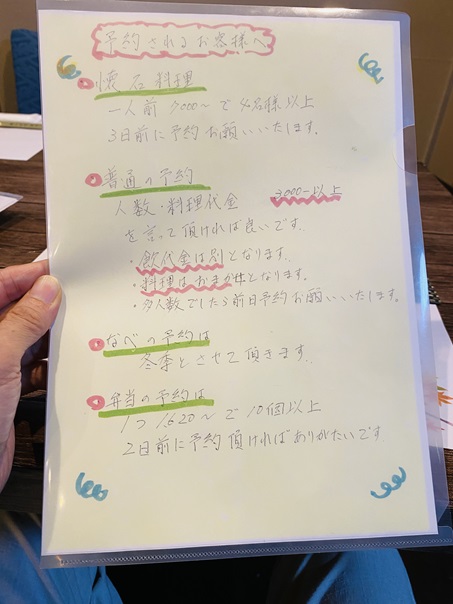 予約されるお客様へ
懐石料理
一人前 7000〜で 4名様以上
3日前に予約お願いいたします。
普通の予約
人数・料理代金 3000−以上
を言って頂ければ良いです。
・飲代金は別となります。
・料理はおまか体となります。
・多人数でしたら前日予約お願いいたします。
なべの予約は
冬季とさせて頂きます。
弁当の予約は
1つ 1620〜で 10個以上
2日前に予約頂ければありがたいです